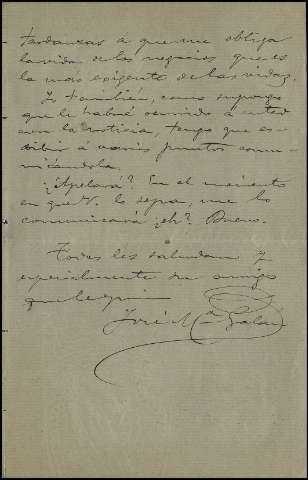 tardanzas a que me obliga
la vida de los negocios que es
la más exigente de las vidas.
Yo también, como supongo
que le habrá ocurrido a usted
con la noticia, tengo que es-
cribir á varios puntos comu-
nicándola.
¿Apelará? En el momento
en que V. lo sepa, me lo
comunicará ¿eh? Bueno.
Todos les saludan y
especialmente su amigo
que le quiere
José Mª Galan